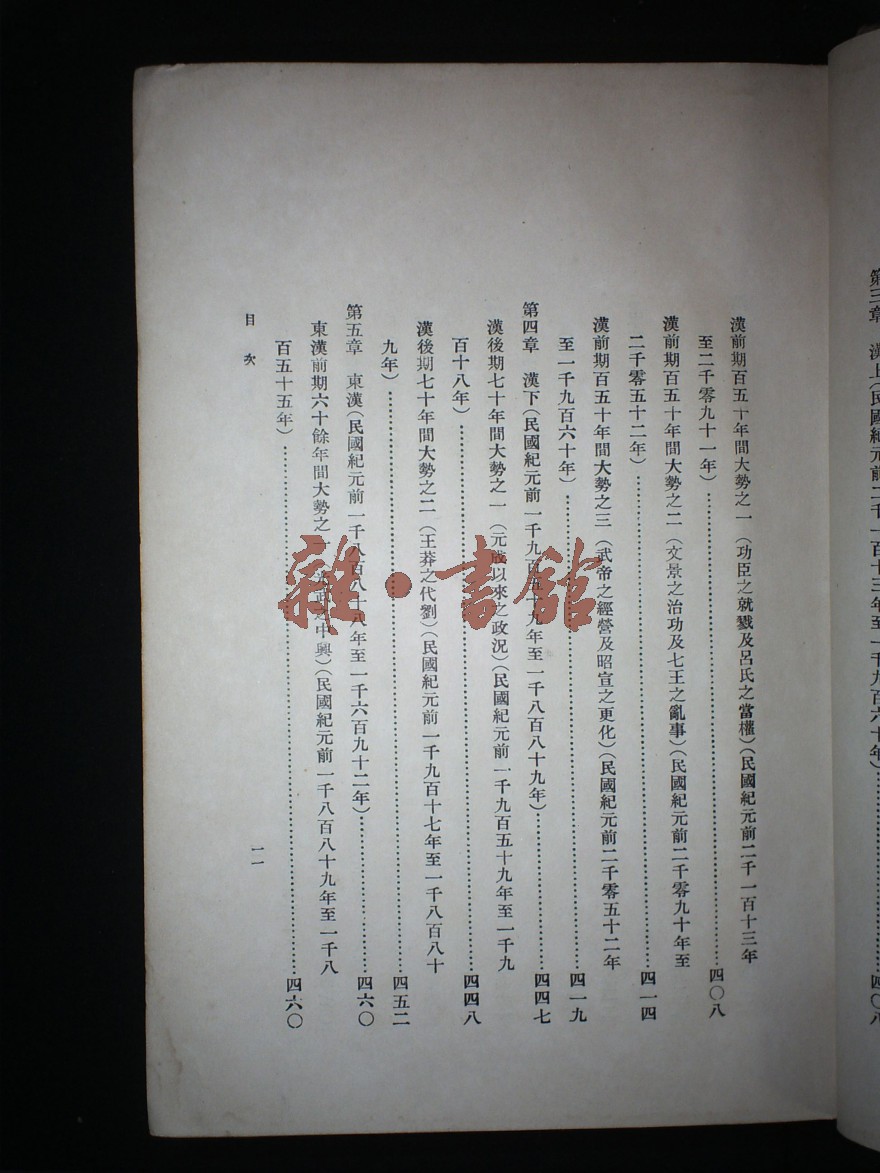 第三章　漢上(民國紀元前二千一百十三年至一千九百六十年)…………四〇八
漢前期百五十年間大勢之一(功臣之就戮及呂氏之當權)(民國紀元前二千一百十三年
至二千零九十一年)…………四〇八
漢前期百五十年間大勢之二(文景之治功及七王之亂事)(民國紀元前二千零九十年至
二千零五十二年)…………四一四
漢前期百五十年間大勢之三(武帝之經營及昭宣之更化)(民國紀元前二千零五十二年
至一千九百六十年)…………四一九
第四章　漢下(民國紀元前一千九百五十九年至一千八百八十九年)…………四四七
漢後期七十年間大勢之一(元成以來之政況)(民國紀元前一千九百五十九年至一千九
百十八年)…………四四八
漢後期七十年間大勢之二(王莽之代劉)(民國紀元前一千九百十七年至一千八百八十
九年)…………四五二
第五章　東漢(民國紀元前一千八百八十八年至一千六百九十二年)…………四六〇
東漢前期六十餘年間大勢之一(光武之中興)(民國紀元前一千八百八十九年至一千八
百五十五年)…………四六〇
目次
一一
雜·書館